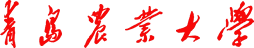 青島农業大學